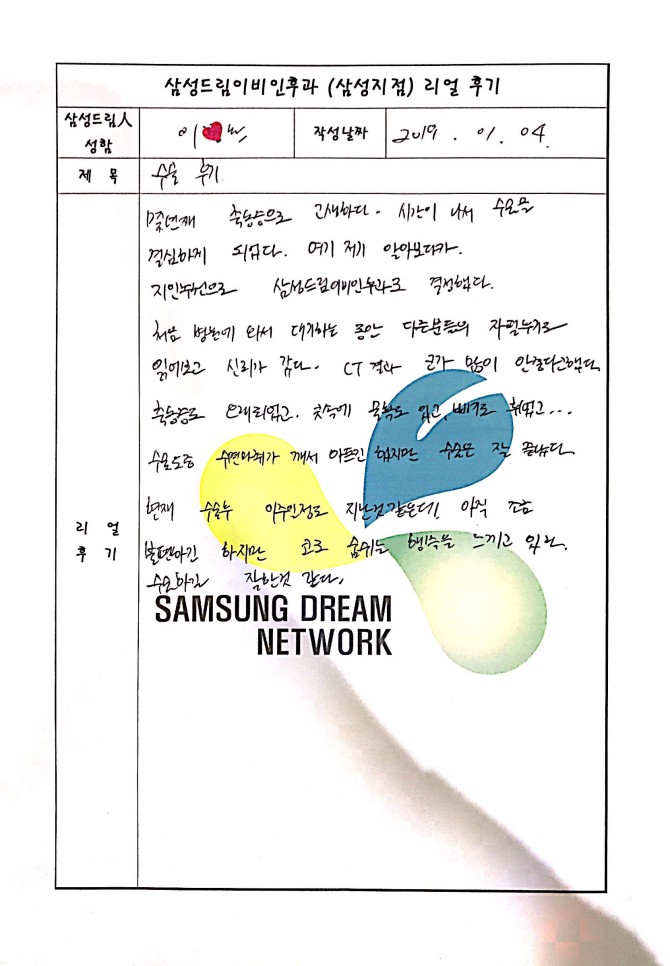 삼성드림이비인후과 (삼성지점) 리얼 후기
삼성드림人 성함
이
작성날짜
2019 . 01 . 04.
제 목
수술 후기
리 얼 후 기
축농증으로 고생하다. 시간이 나서 수술을
결심하게 되었다. 여기 저기 알아보다가.
지인추천으로 삼성드림이비인후과로 결정했다.
처음 병원에 와서 대기하는 동안 다른분들의 자필후기를
읽어보고 신뢰가 갔다. CT 결과 코가 많이 안좋다고했다
축농증도 오래되었고. 콧속에 물혹도 있고, 비키도 휘었고...
수술도중 수면마취가 깨서 아프긴 했지만 수술은 잘 끝났다.
현재 수술후 이주일정도 지난것같은데, 아직 조금
불편하긴 하지만 코로 숨쉬는 행복을 느끼고 있다.
수술하길 잘한것 같다.
SAMSUNG DREAM
NETWORK